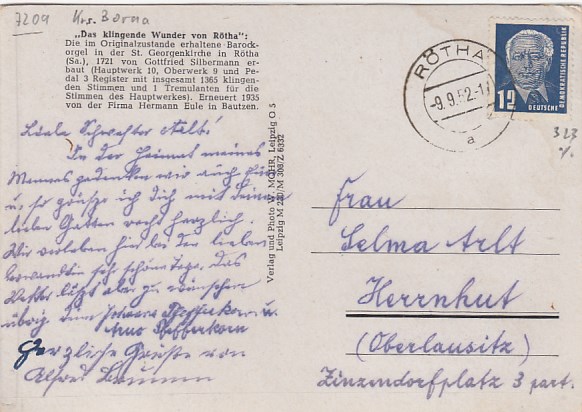 7209 Krs. Borna
„Das klingende Wunder von Rötha":
Die im Originalzustande erhaltene Barock-
orgel in der St. Georgenkirche in Rötha
(Sa.), 1721 von Gottfried Silbermann er-
baut (Hauptwerk 10, Oberwerk 9 und Pe-
dal 3 Register mit insgesamt 1365 klingen-
den Stimmen und 1 Tremulanten für die
Stimmen des Hauptwerkes). Erneuert 1935
von der Firma Hermann Eule in Bautzen.
Liebe Schwester Arlt!
In der Heimat meines
Mannes gedenken wir auch
u. so grüße ich Dich mit Deinem
lieben Gatten recht herzlich.
Wir verleben hier bei der lieben
sehr schöne Tage. Das
Wetter läßt aber zu wünschen
übrig. u.
Herzliche Grüße von
Alfred
Verlag und Photo W. MOHR, Leipzig O 5
Leipzig M 220/M 308/Z 6332
RÖTHA
-9.9.52.-1
a
12
DEUTSCHE
DEMOKRATISCHE REPUBLIK
323
Frau
Selma Arlt
Herrnhut
(Oberlausitz)
Zinzendorfplatz 3 part.